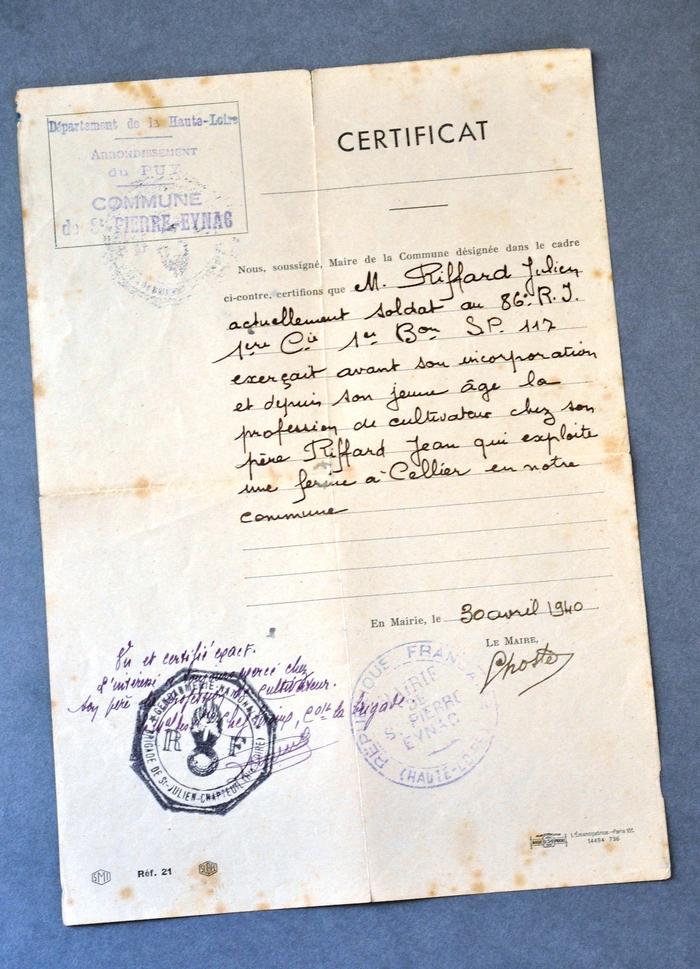 Département de la Haute-Loire
ARRONDISSEMENT
du PUY
COMMUNE
de St PIERRE-EYNAC
CERTIFICAT
Nous, soussigné, Maire de la Commune désignée dans le cadre
ci-contre, certifions que M. Riffard Julien
actuellement soldat au 86e R.I.
1ere Cie 1er Bon S.P. 117
exerçait avant son incorporation
et depuis son jeune âge la
profession de cultivateur chez son
père Riffard Jean qui exploite
une ferme à Cellier en notre
commune
En Mairie, le 30 avril 1940
LE MAIRE,
Vu et certifié exact.
L'intéressé a toujours exercé chez
son père la profession de cultivateur.
Cdt la brigade
GENDARMERIE NATIONALE
R F
BRIGADE DE St-JULIEN-CHAPTEUIL (Hte LOIRE)
RÉPUBLIQUE FRANÇAISE
MAIRIE
DE
St PIERRE
EYNAC
(HAUTE-LOIRE)
SMI
Réf. 21
L'Émancipatrice - Paris
14494 736